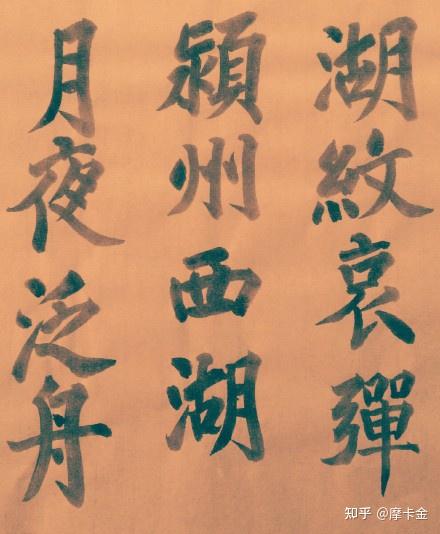 湖紋哀彈
潁州西湖
月夜泛舟
知乎 @摩卡金